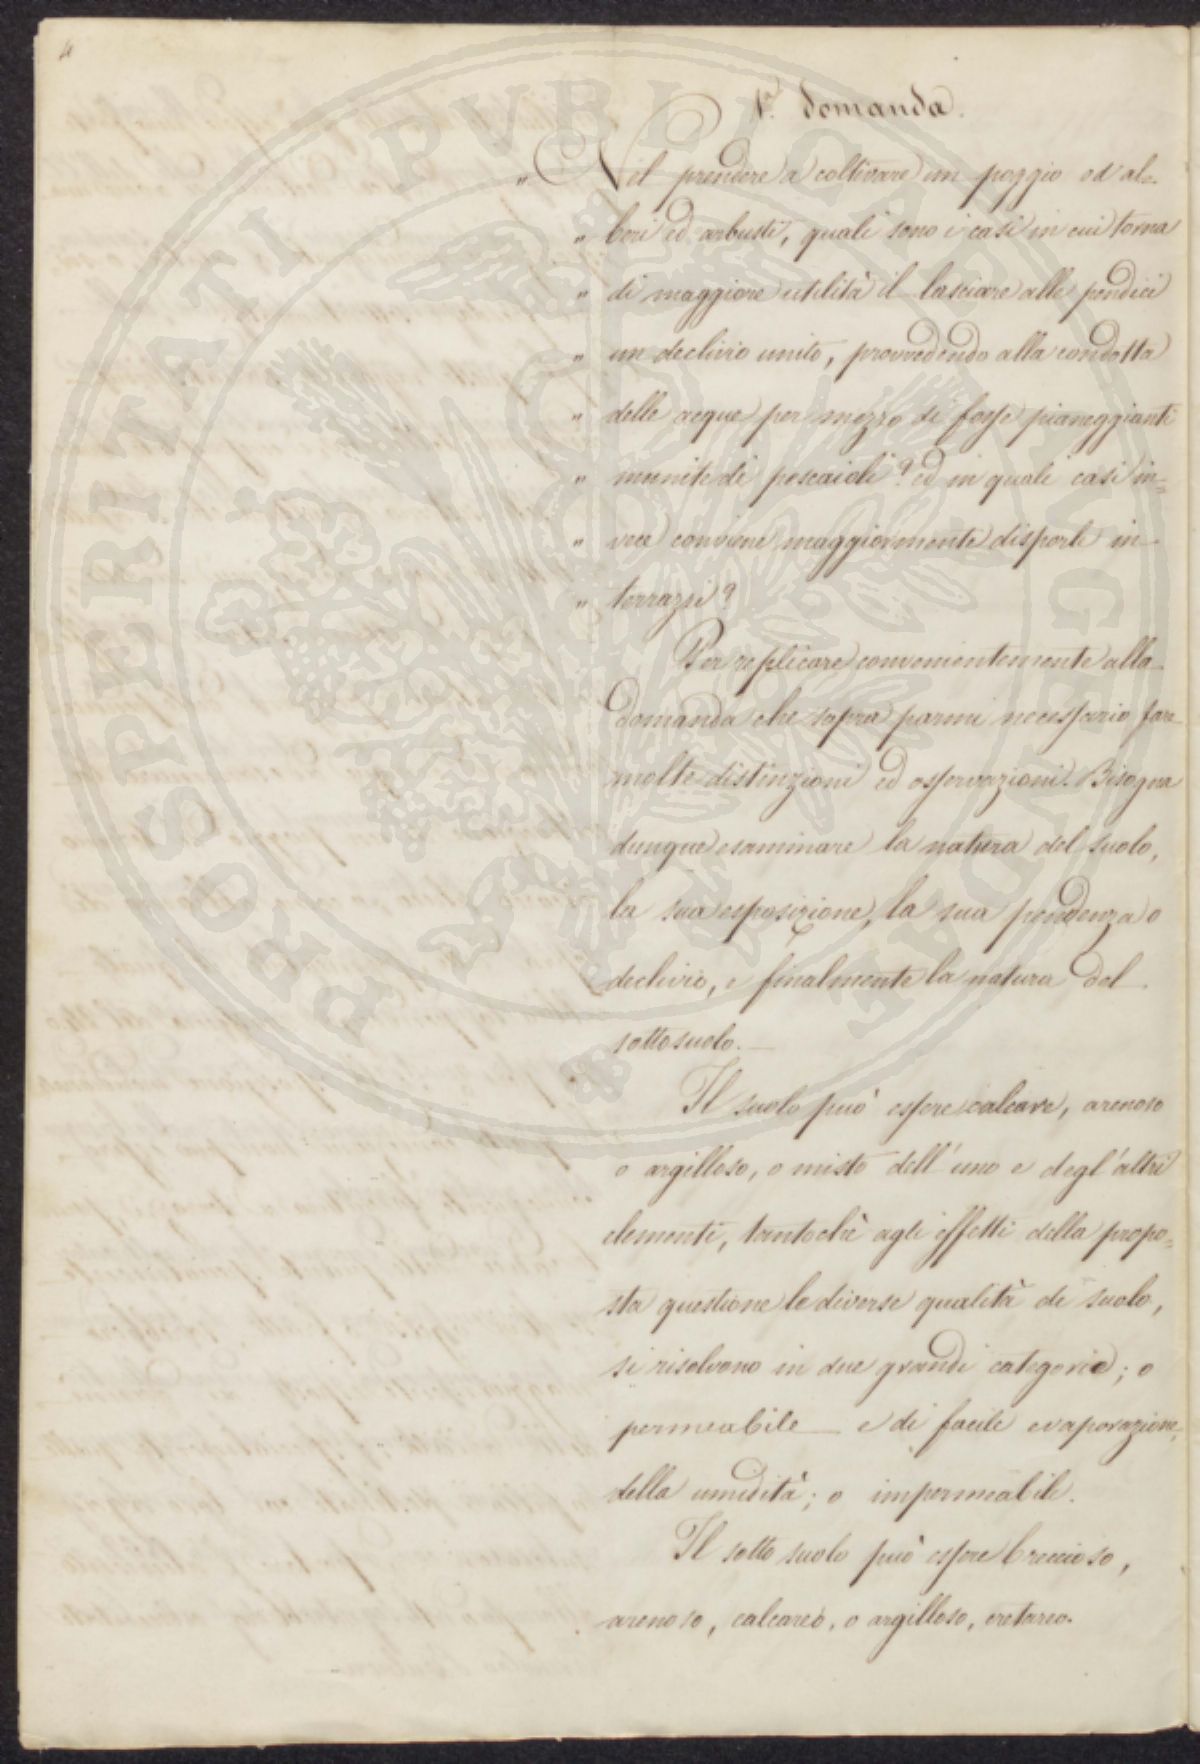 4
1.a Domanda.
" Nel prendere a coltivare un poggio ad al=
" beri ed arbusti, quali sono i casi in cui torna
" di maggiore utilità il lasciare alle pendici
" un declivio unito, provvedendo alla condotta
" delle acque per mezzo di fosse pianeggianti
" munite di pescaioli? ed in quali casi in=
" vece conviene maggiormente disporle in
" terrazzi?
Per replicare convenientemente alla
domanda che sopra parmi necessario fare
molte distinzioni ed osservazioni. Bisogna
dunque esaminare la natura del suolo,
la sua esposizione, la sua pendenza o
declivio, e finalmente la natura del
sottosuolo.
Il suolo può essere calcare, arenoso
o argilloso, o misto dell'uno e degl'altri
elementi, tantochè agli effetti della propo=
sta questione le diverse qualità di suolo,
si risolvono in due grandi categorie; o
permeabile e di facile evaporazione
della umidità; o impermeabile.
Il sotto suolo può essere breccioso,
arenoso, calcareo, o argilloso, cretaceo.
PROSPERITATI PVBLICAE AVGENDAE